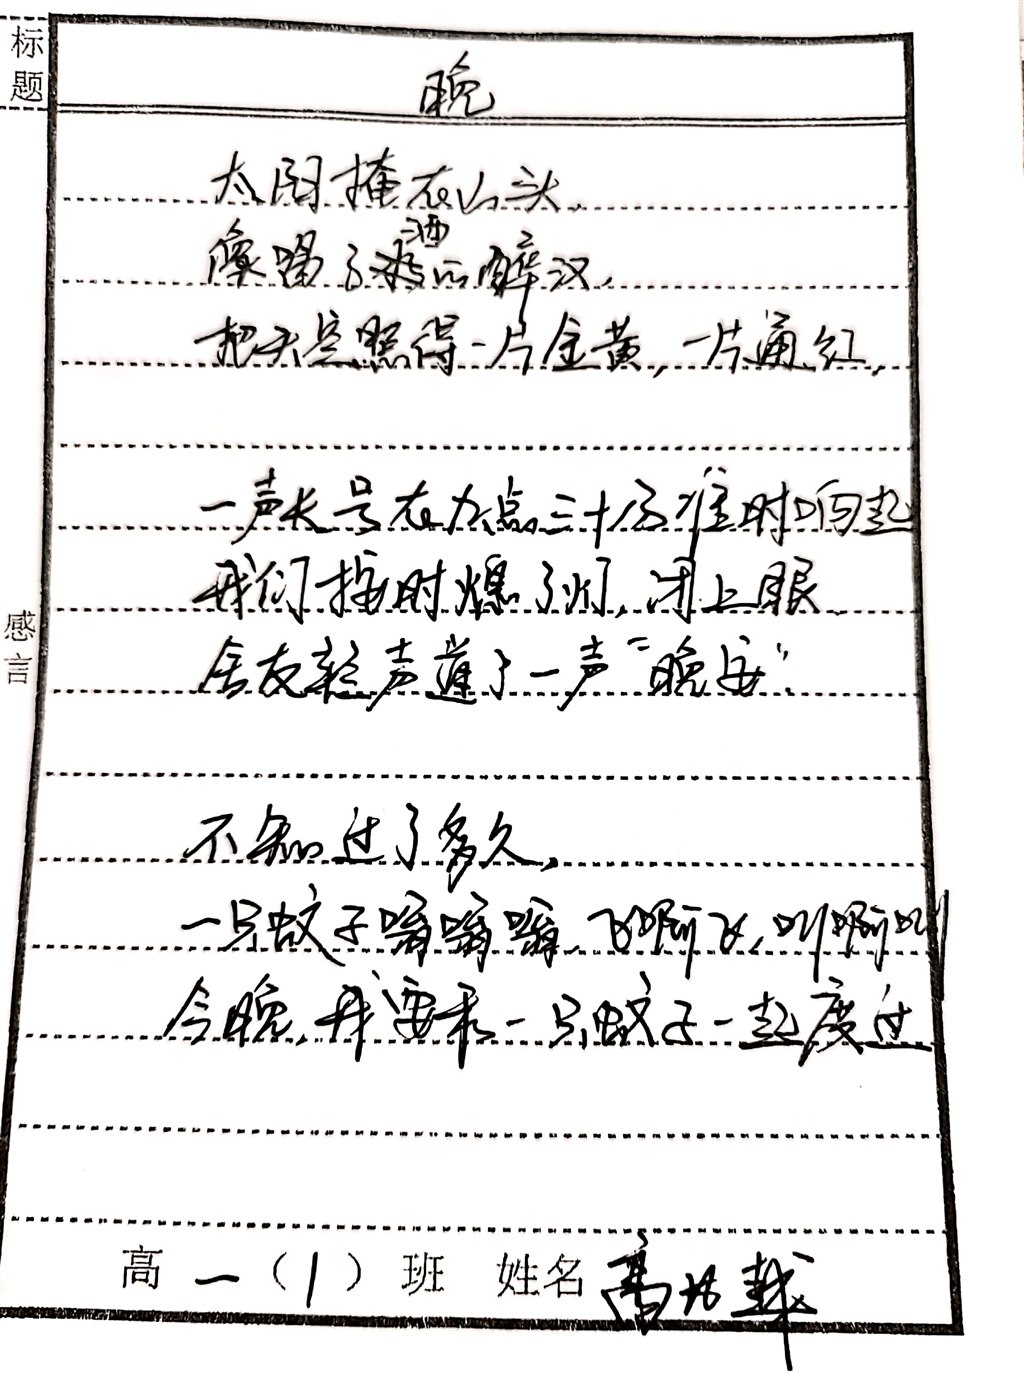 标题
晚
太阳掩在山头、
像喝了酒的醉汉，
把天空照得一片金黄，一片通红，
一声长号在九点三十分准时响起
我们按时熄了灯，闭上眼、
感言
舍友轻声道了一声“晚安”.
不知过了多久，
一只蚊子嗡嗡嗡、飞啊飞，叫啊叫
今晚，我要和一只蚊子一起度过
高一（1）班 姓名 高